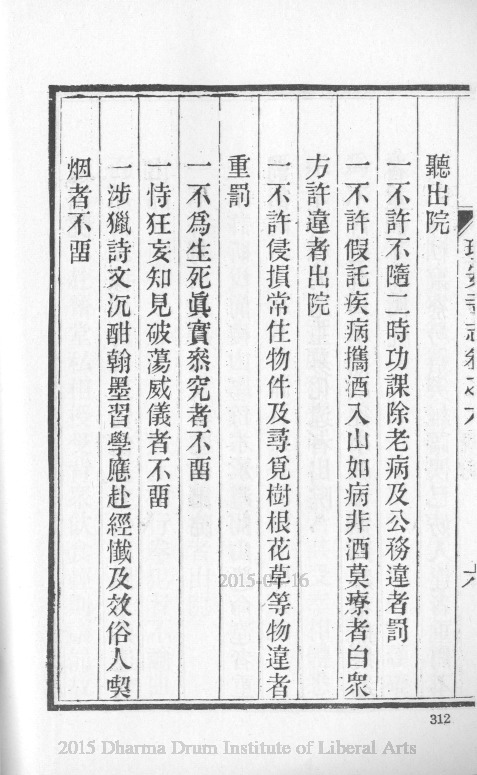 理安寺志卷之六
六
聽出院
一不許不隨二時功課除老病及公務違者罰
一不許假託疾病攜酒入山如病非酒莫療者白衆
方許違者出院
一不許侵損常住物件及尋覓樹根花草等物違者
重罰
一不爲生死眞實叅究者不畱
一恃狂妄知見破蕩威儀者不畱
一涉獵詩文沉酣翰墨習學應赴經懺及效俗人喫
烟者不畱
312
2015 Dharma Drum Institute of Liberal Arts